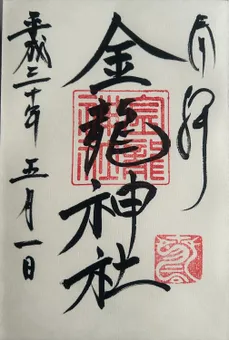 奉拝
金龍神社
平成三十年 五月一日
金龍神社